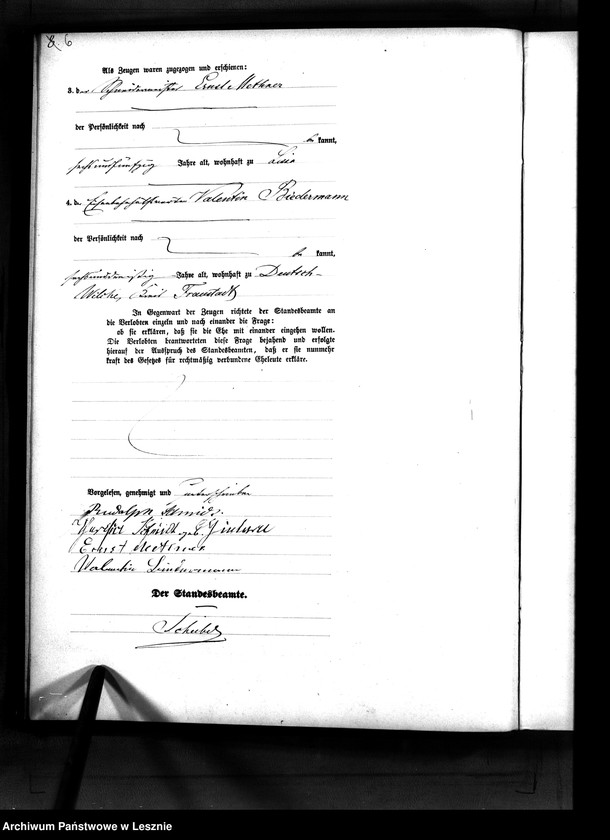 & 6
Als Zeugen waren zugezogen und erschienen:
3. der Schneidermeister Ernst Methner
der Persönlichkeit nach
be kannt,
sechsundfünfzig Jahre alt, wohnhaft zu Lissa
4. der Valentin Biedermann
der Persönlichkeit nach
be kannt,
sechsunddreißig Jahre alt, wohnhaft zu Deutsch-
Wilke, Kreis Fraustadt
In Gegenwart der Zeugen richtete der Standesbeamte an
die Verlobten einzeln und nach einander die Frage:
ob sie erklären, daß sie die Ehe mit einander eingehen wollen.
Die Verlobten beantworteten diese Frage bejahend und erfolgte
hierauf der Ausspruch des Standesbeamten, daß er sie nunmehr
kraft des Gesetzes für rechtmäßig verbundene Eheleute erkläre.
Vorgelesen, genehmigt und unterschrieben
Rudolph Schmidt
Schmidt geb.
Ernst Methner
Valentin Biedermann
Der Standesbeamte.
Archiwum Państwowe w Lesznie